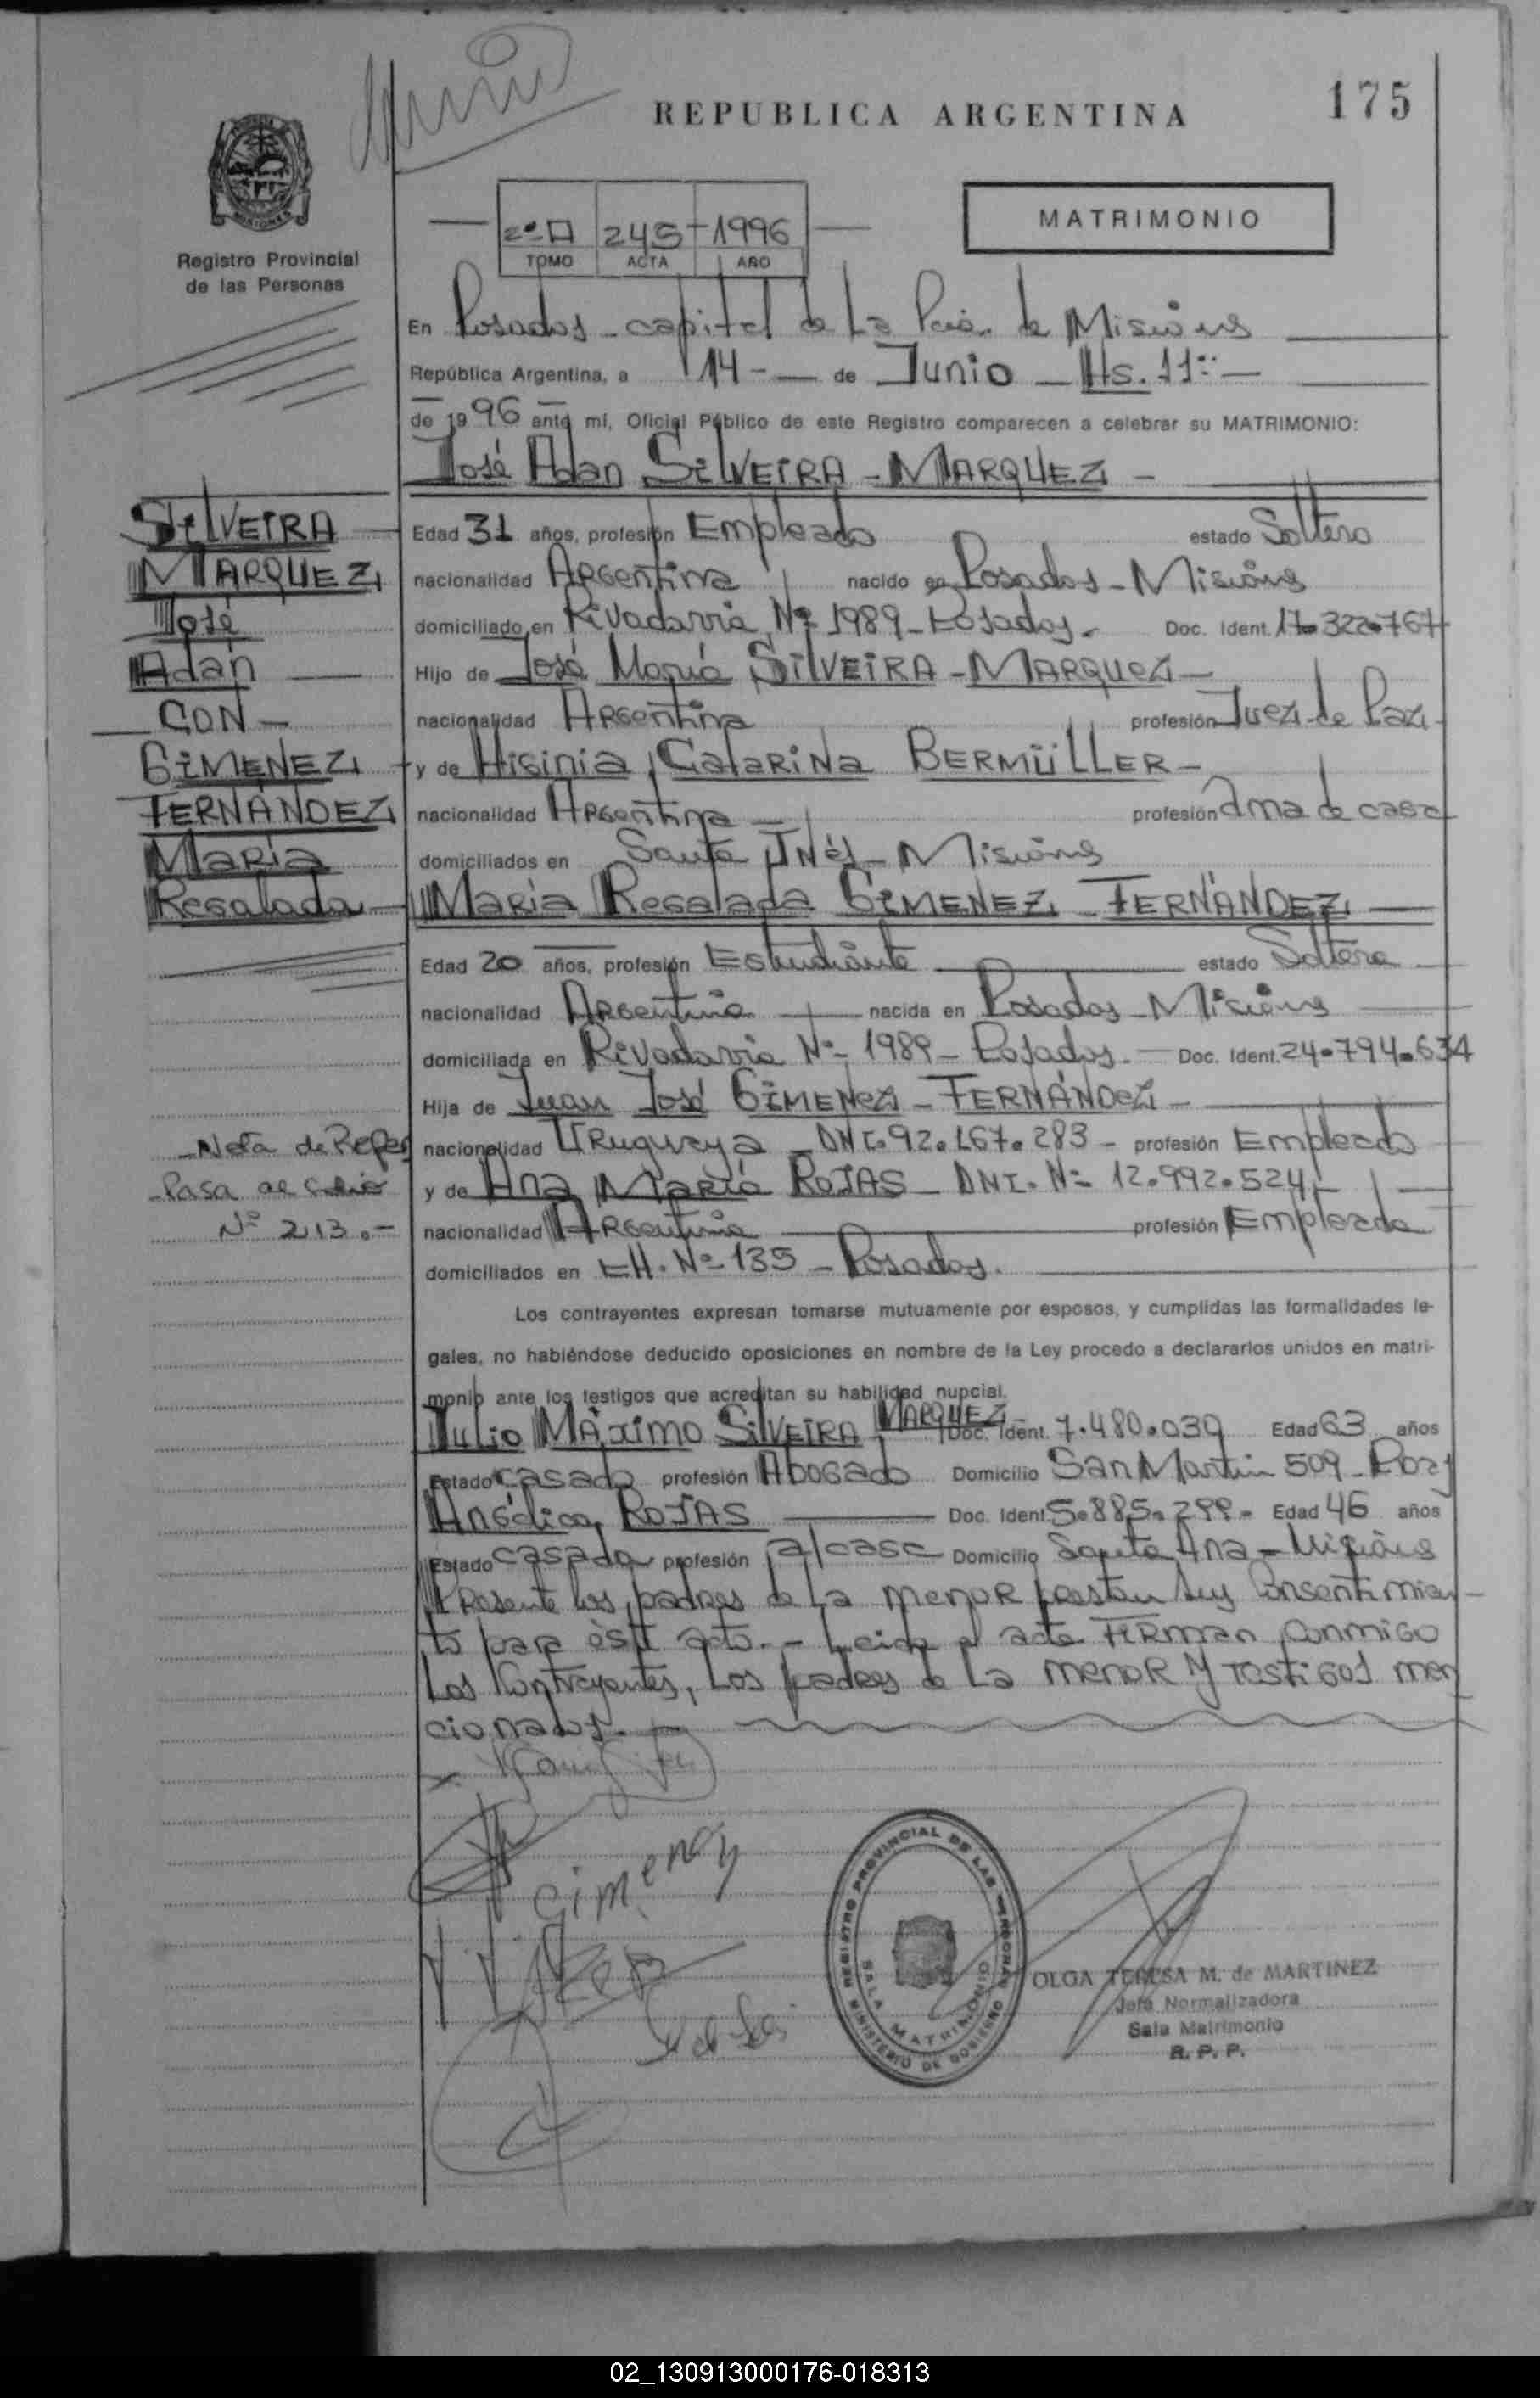 175
REPUBLICA ARGENTINA
MATRIMONIO
2º A 245 1996
TOMO ACTA AÑO
Registro Provincial
de las Personas
En Posadas - capital de La Pcia. de Misiones
República Argentina, a 14 - de Junio - Hs. 11
de 1996 ante mí, Oficial Público de este Registro comparecen a celebrar su MATRIMONIO:
José Adan SILVEIRA - MARQUEZ -
SILVEIRA
MARQUEZ
José
Adán
CON -
GIMENEZ
FERNÁNDEZ
María
Regalada
Edad 31 años, profesión Empleado estado Soltero
nacionalidad Argentina nacido en Posadas - Misiones
domiciliado en Rivadavia Nº 1989 - Posadas - Doc. Ident. 17.322.767
Hijo de José María SILVEIRA - MARQUEZ -
nacionalidad Argentina profesión Juez de Paz
y de Higinia Catarina BERMÜLLER -
nacionalidad Argentina profesión ama de casa
domiciliados en Santa Inés - Misiones
María Regalada GIMENEZ - FERNÁNDEZ
Edad 20 años, profesión Estudiante estado Soltera
nacionalidad Argentina nacida en Posadas - Misiones
domiciliada en Rivadavia Nº 1989 - Posadas - Doc. Ident. 24.794.634
Hija de Juan José GIMENEZ - FERNÁNDEZ -
nacionalidad Uruguaya - DNI. 92.267.283 - profesión Empleado
y de Ana María ROJAS - DNI. Nº 12.992.524
nacionalidad Argentina profesión Empleada
domiciliados en EH. Nº 135 - Posadas.
- Nota de Refer
- Pasa al folio
Nº 213.-
Los contrayentes expresan tomarse mutuamente por esposos, y cumplidas las formalidades le-
gales, no habiéndose deducido oposiciones en nombre de la Ley procedo a declararlos unidos en matri-
monio ante los testigos que acreditan su habilidad nupcial.
Julio Máximo SILVEIRA MARQUEZ Doc. Ident. 7.480.039 Edad 63 años
Estado casado profesión Abogado Domicilio San Martín 509 - Pdas
Angélica ROJAS Doc. Ident. 5.885.299 - Edad 46 años
Estado casada profesión a/casa Domicilio Santa Ana - Misiones
Presente los padres de La menor prestan sus consentimien-
to para éste acto. - Leida el acta Firman conmigo
Los Contrayentes, Los padres de La menor y testigos men
cionados.
Gimenez
REGISTRO PROVINCIAL DE LAS PERSONAS
MINISTERIO DE GOBIERNO
SALA MATRIMONIO
OLGA TERESA M. de MARTINEZ
Jefa Normalizadora
Sala Matrimonio
R. P. P.
02_130913000176-018313